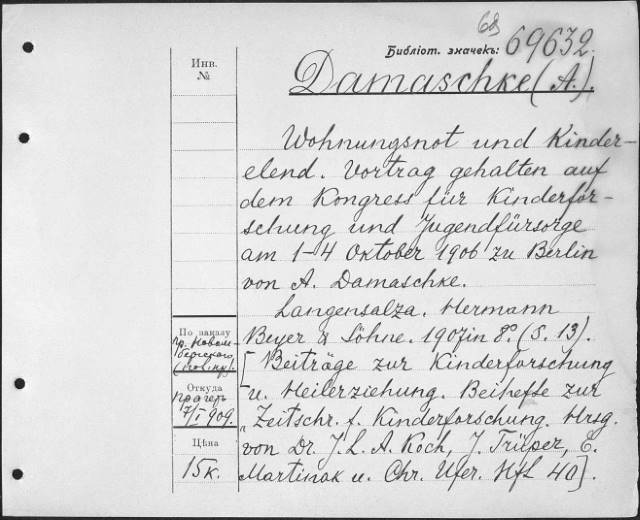 68
Библіот. значекъ: 69632.
Инв.
№
Damaschke (A.).
Wohnungsnot und Kinder-
elend. Vortrag gehalten auf
dem Kongress für Kinderfor-
schung und Jugendfürsorge
am 1-4 Oktober 1906 zu Berlin
von A. Damaschke.
Langensalza. Hermann
Beyer & Söhne. 1907 in 8º. (S. 13).
[Beiträge zur Kinderforschung
u. Heilerziehung. Beihefte zur
"Zeitschr. f. Kinderforschung. Hrsg.
von Dr. J. L. A. Koch, J. Trüper, E.
Martinak u. Chr. Ufer. Hft 40].
По заказу
Откуда
Прагеръ
7/I 909.
Цѣна
15 к.